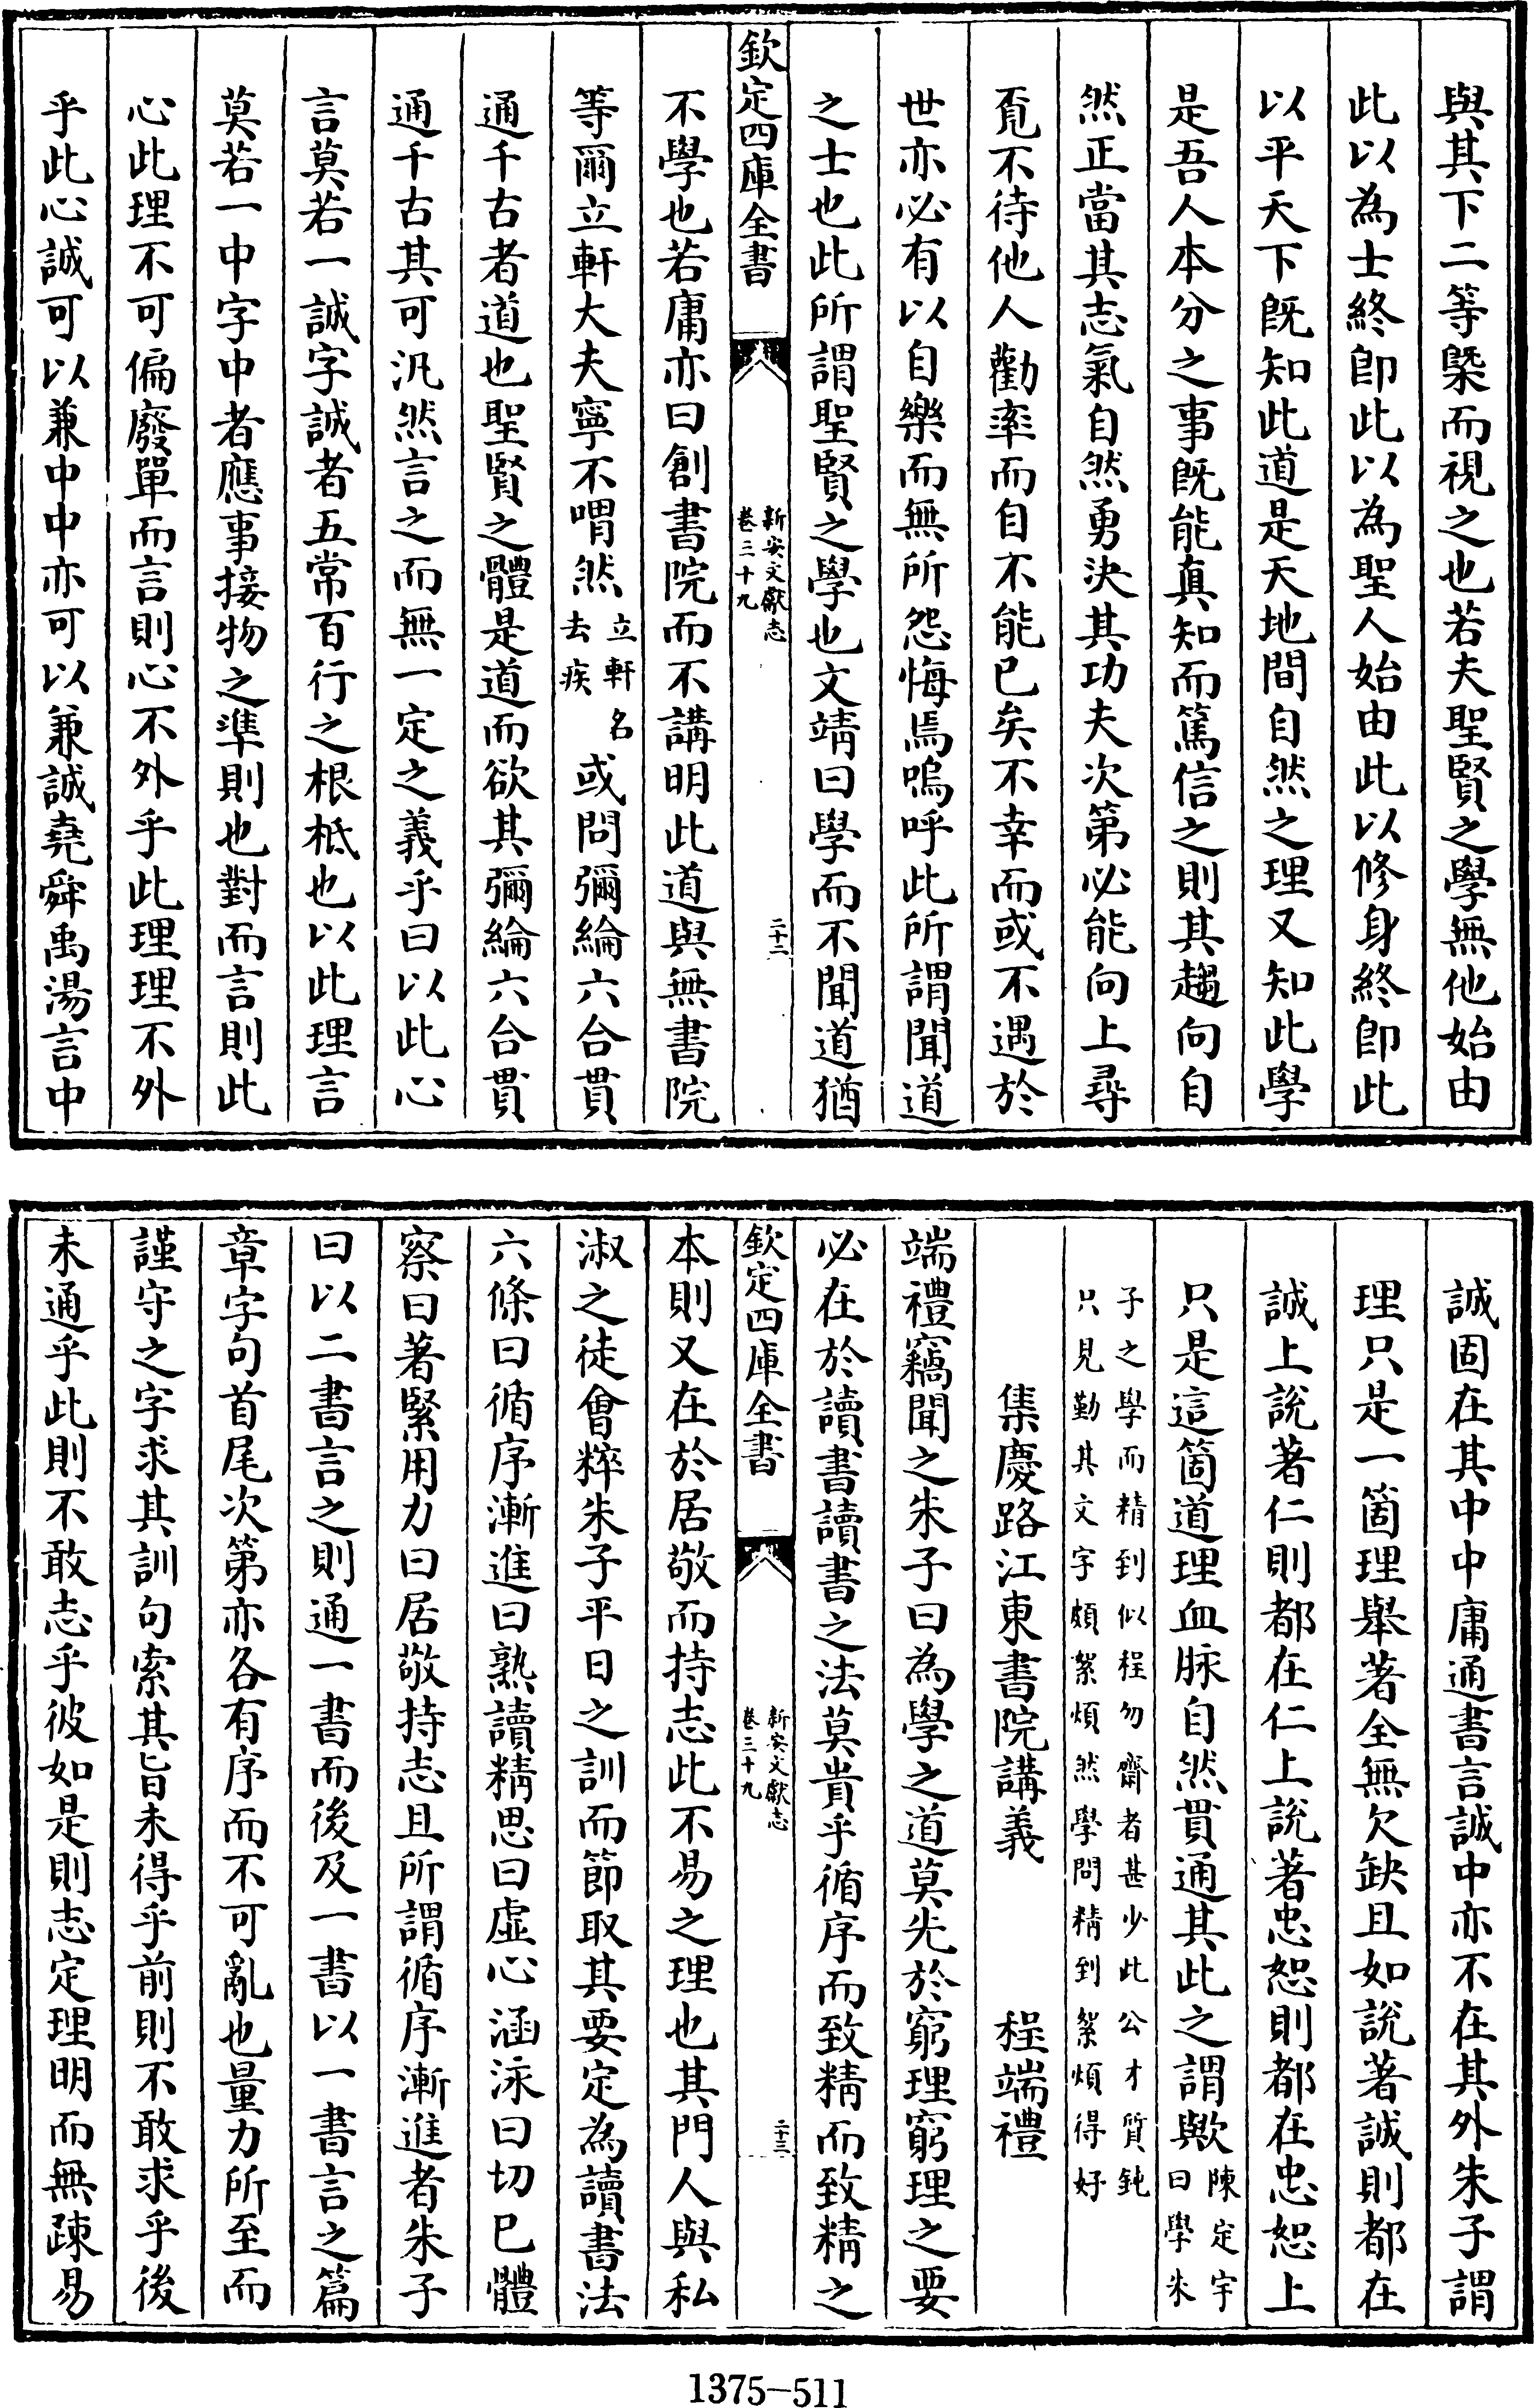 與其下二等槩而視之也若夫聖賢之學無他始由
此以為士終即此以為聖人始由此以修身終即此
以平天下既知此道是天地間自然之理又知此學
是吾人本分之事既能真知而篤信之則其趨向自
然正當其志氣自然勇決其功夫次第必能向上尋
覔不待他人勸率而自不能已矣不幸而或不遇於
世亦必有以自樂而無所怨悔焉嗚呼此所謂聞道
之士也此所謂聖賢之學也文靖曰學而不聞道猶
欽定四庫全書
新安文獻志
卷三十九
二十二
不學也若庸亦曰創書院而不講明此道與無書院
等爾立軒大夫寧不喟然立軒名去疾或問彌綸六合貫
通千古者道也聖賢之體是道而欲其彌綸六合貫
通千古其可汎然言之而無一定之義乎曰以此心
言莫若一誠字誠者五常百行之根柢也以此理言
莫若一中字中者應事接物之準則也對而言則此
心此理不可偏廢單而言則心不外乎此理理不外
乎此心誠可以兼中中亦可以兼誠堯舜禹湯言中
誠固在其中中庸通書言誠中亦不在其外朱子謂
理只是一箇理舉著全無欠缺且如說著誠則都在
誠上說著仁則都在仁上說著忠恕則都在忠恕上
只是這箇道理血脉自然貫通其此之謂歟陳定宇曰學朱
子之學而精到似程勿齋者甚少此公才質鈍
只見勤其文字頗絮煩然學問精到絮煩得好
集慶路江東書院講義 程端禮
端禮竊聞之朱子曰為學之道莫先於窮理窮理之要
必在於讀書讀書之法莫貴乎循序而致精而致精之
欽定四庫全書
新安文獻志
卷三十九
二十三
本則又在於居敬而持志此不易之理也其門人與私
淑之徒會粹朱子平日之訓而節取其要定為讀書法
六條曰循序漸進曰熟讀精思曰虛心涵泳曰切已體
察曰著緊用力曰居敬持志且所謂循序漸進者朱子
曰以二書言之則通一書而後及一書以一書言之篇
章字句首尾次第亦各有序而不可亂也量力所至而
謹守之字求其訓句索其旨未得乎前則不敢求乎後
未通乎此則不敢志乎彼如是則志定理明而無疎易
1375-511